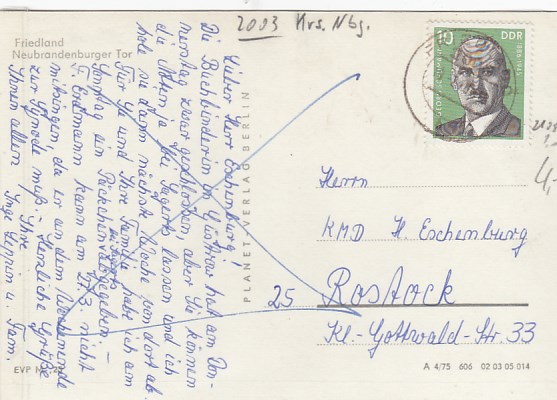 2003 Krs. Nbg.
Friedland
Neubrandenburger Tor
10 DDR
Lieber Herr Eschenburg!
Die Buchbinderei in Güstrow hat am Don-
nerstag zwar geschlossen, aber Sie können
die Noten ja bei lassen und ich
hole sie dann nächste Woche von dort ab.
Für Sie und Ihre Familie habe ich am
ein Päckchen abgegeben. –
F. Erdmann kann am 27/3 nicht
mitsingen, da er an dem Wochenende
zur Synode muß. – Herzliche Grüße
Ihnen allen
Ihre
Inge u. Fam.
PLANET-VERLAG BERLIN
Herrn
KMD H. Eschenburg
25 Rostock
Kl.-Gottwald-Str. 33
EVP M
A 4/75 606 02 03 05 014